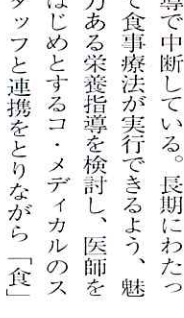 導で中断している。長期にわたっ
て食事療法が実行できるよう、魅
力ある栄養指導を検討し、医師を
はじめとするコ・メディカルのス
タッフと連携をとりながら「食」